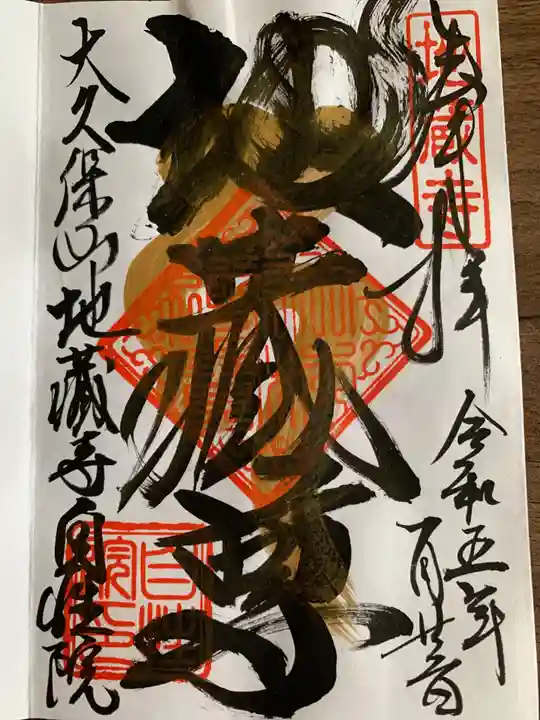 奉拝
地蔵寺
令和五年
一月廿
地蔵尊
大久保山地蔵寺自性院